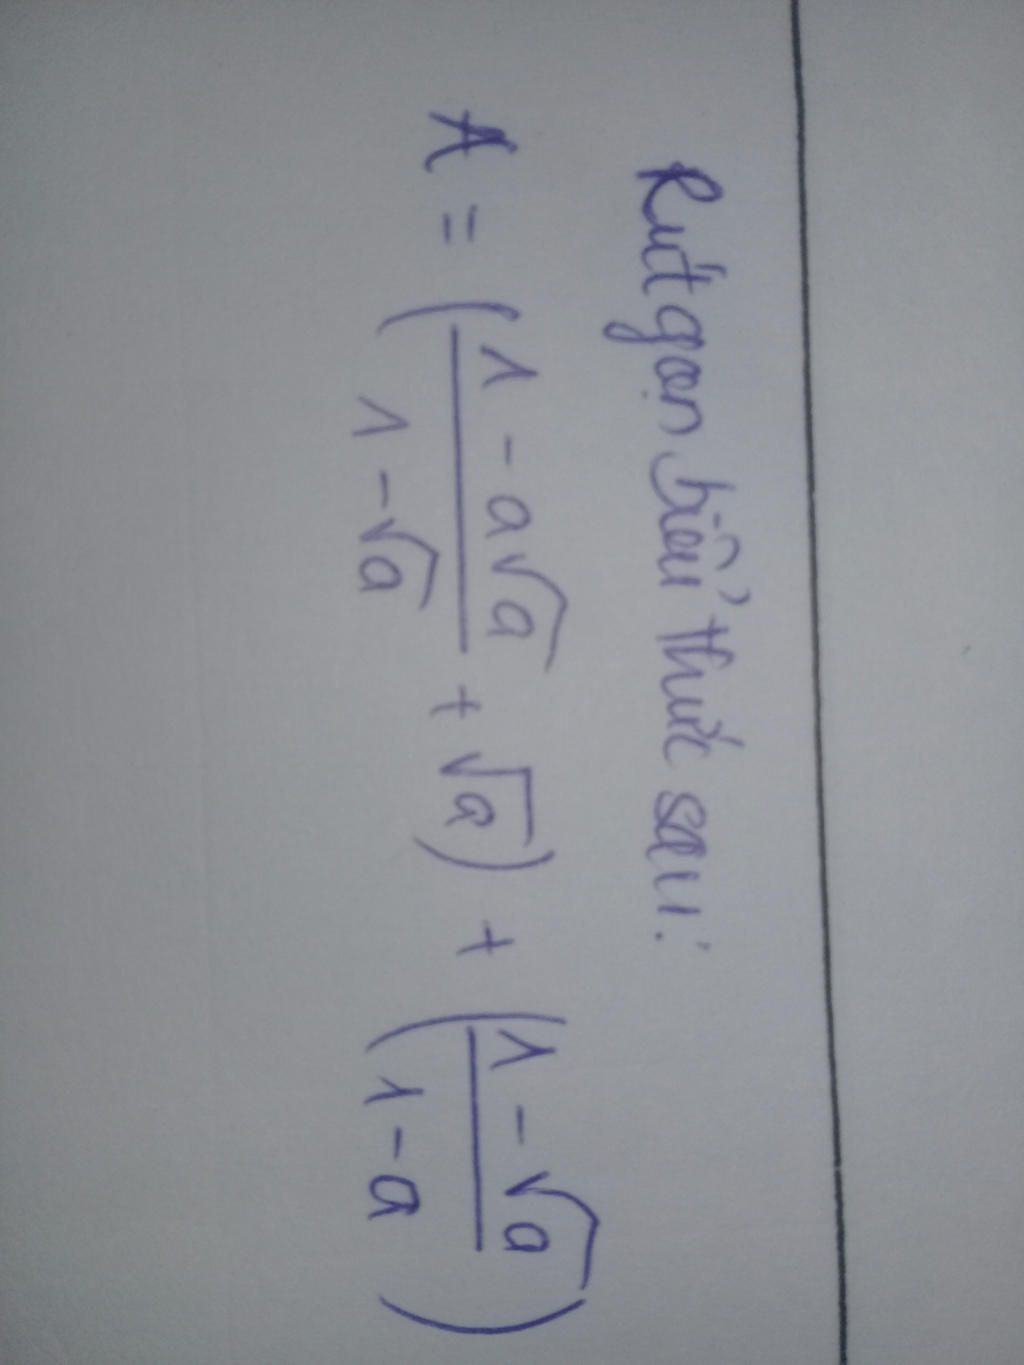 Rút gọn biểu thức sau:
A = (\frac{1 - a\sqrt{a}}{1 - \sqrt{a}} + \sqrt{a}) + (\frac{1 - \sqrt{a}}{1 - a})